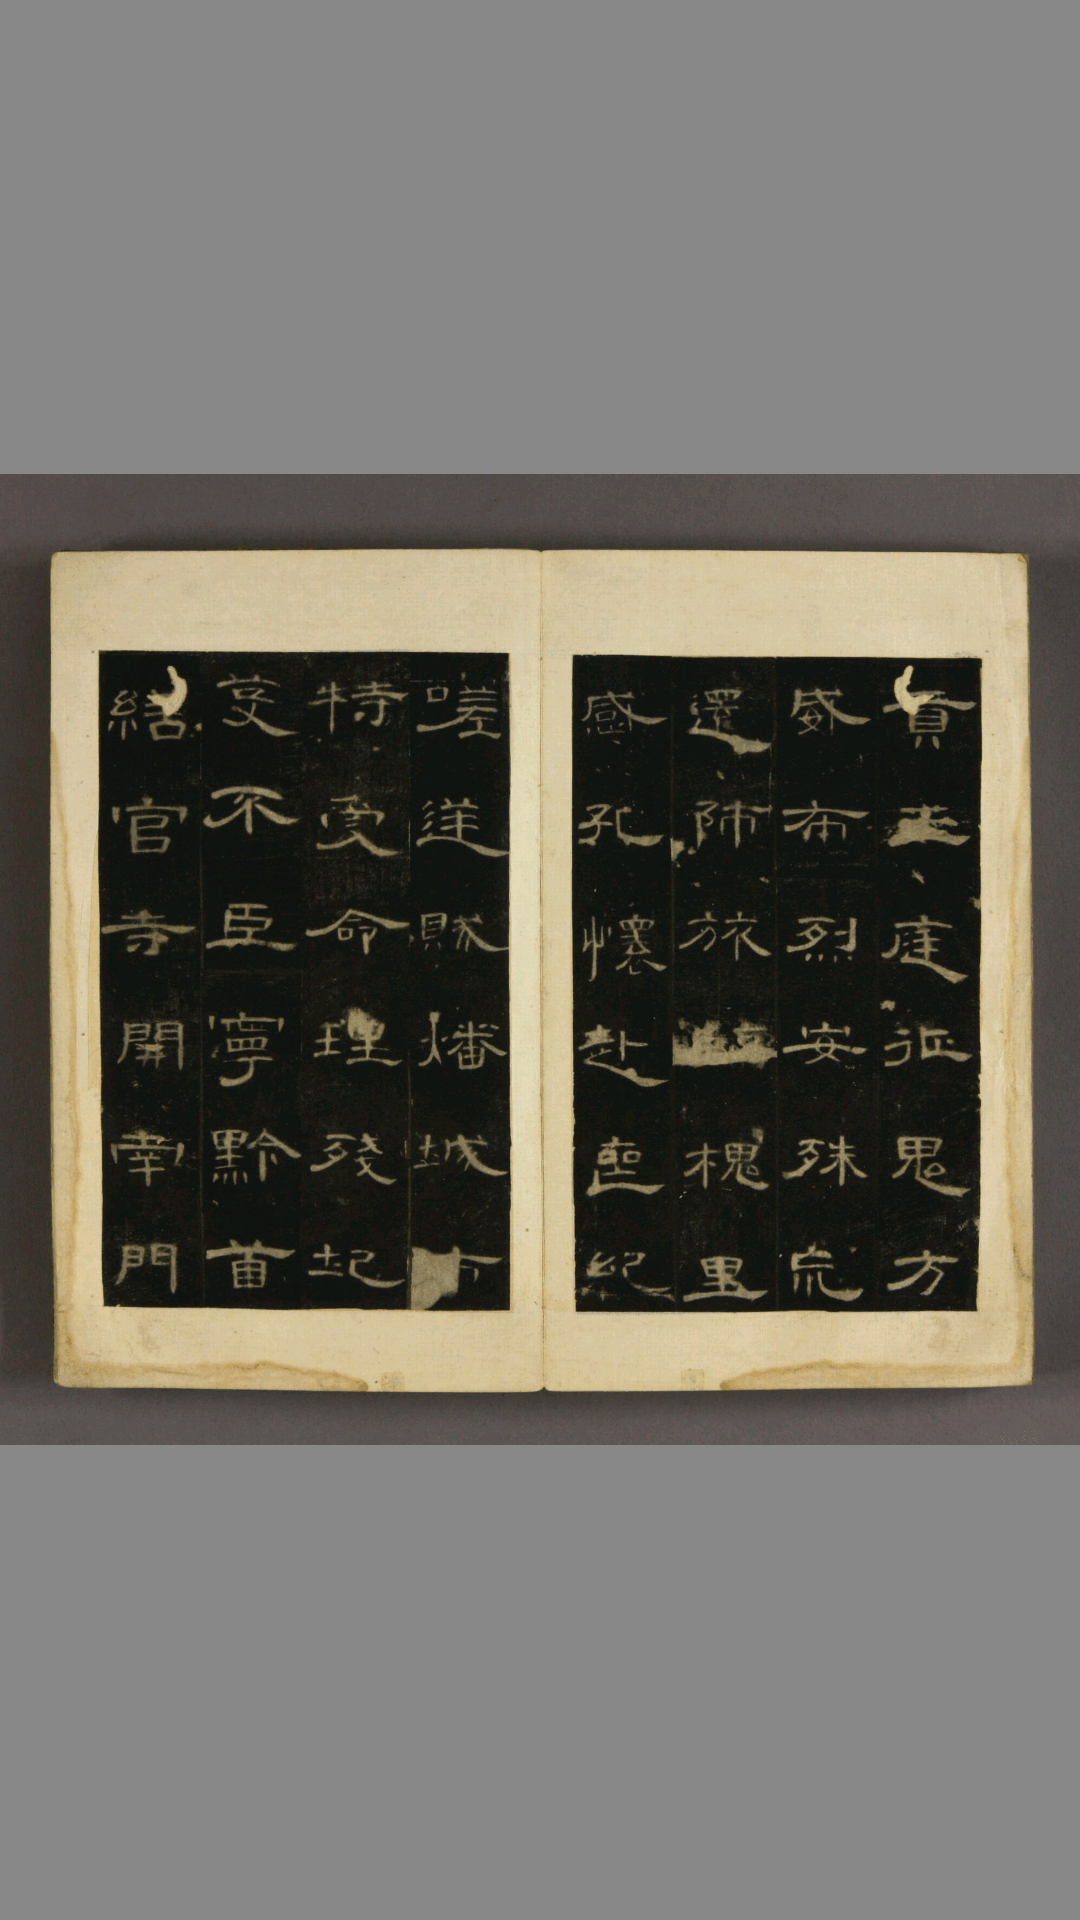 貢王庭征鬼方
威布烈安殊荒
還師旅槐里
感孔懷赴喪紀
嗟逆賊燔城市
特受命理殘圮
芟不臣寧黔首
繕官寺開南門